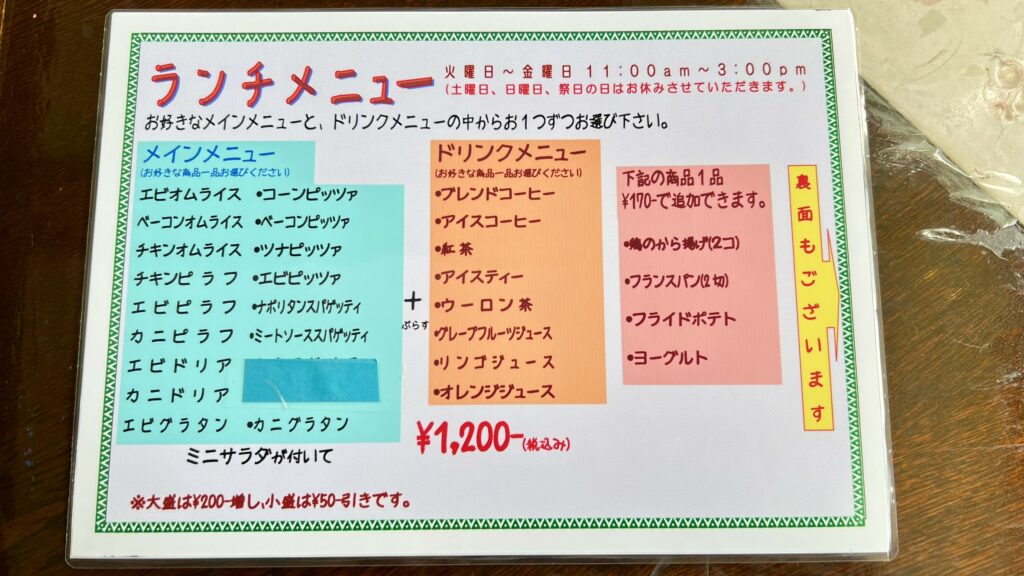 ランチメニュー
火曜日～金曜日 11:00am～3:00pm
(土曜日、日曜日、祭日の日はお休みさせていただきます。)
お好きなメインメニューと、ドリンクメニューの中からお1つずつお選び下さい。
メインメニュー
(お好きな商品一品お選びください)
エビオムライス •コーンピッツァ
ベーコンオムライス •ベーコンピッツァ
チキンオムライス •ツナピッツァ
チキンピラフ •エビピッツァ
エビピラフ •ナポリタンスパゲッティ
カニピラフ •ミートソーススパゲッティ
エビドリア
カニドリア
エビグラタン •カニグラタン
ミニサラダが付いて
+
ぷらす
ドリンクメニュー
(お好きな商品一品お選びください)
•ブレンドコーヒー
•アイスコーヒー
•紅茶
•アイスティー
•ウーロン茶
•グレープフルーツジュース
•リンゴジュース
•オレンジジュース
¥1,200-(税込み)
下記の商品1品
¥170-で追加できます。
•鶏のから揚げ(2コ)
•フランスパン(2切)
•フライドポテト
•ヨーグルト
裏面もございます
※大盛は¥200-増し、小盛は¥50-引きです。